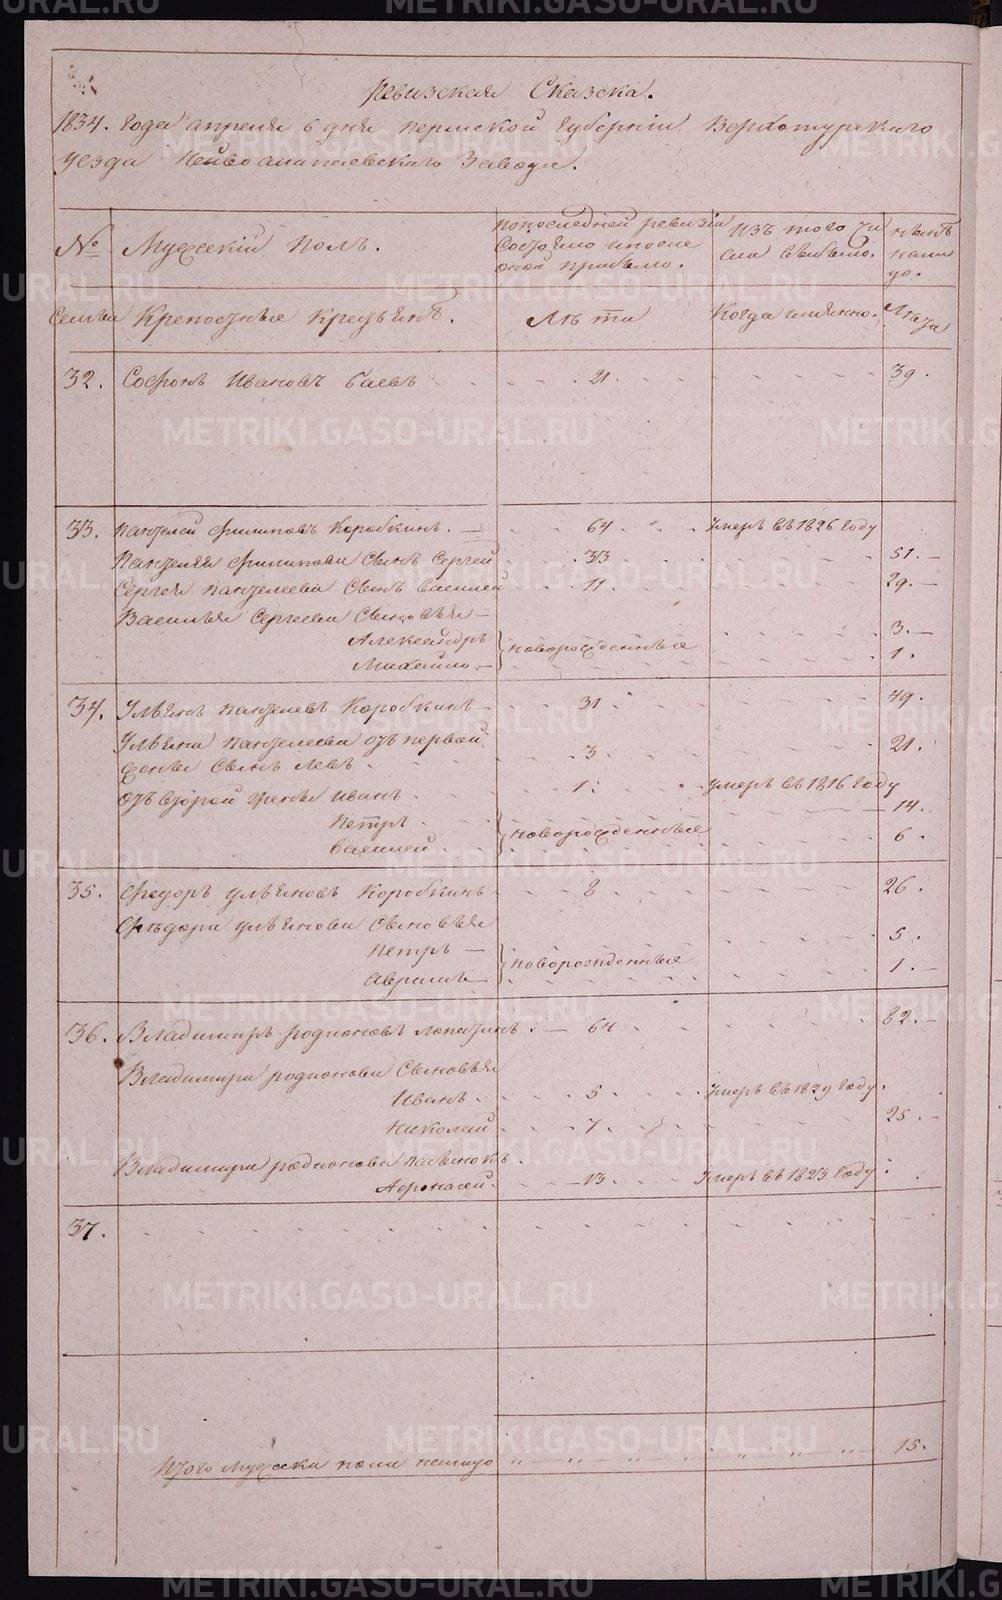 Ревизская Сказска.
1834. года апреля 6 дня пермской губернии Верхотурскаго
уезда Нейвоалапаевскаго Завода.
№ Мужескiй полъ. попоследней ревизiи состояло ипосле оной прибыло. Изъ того числа выбыло. нынѣ налицо.
Семьи Крепостные крестьянѣ. Лѣта Когда имянно. Лета
32. Софонъ Ивановъ Баевъ 21. 39.
33. Пантелей Филиповъ Коробкинъ. 64. Умеръ въ 1826 году
Пантелея Филипова Сынъ Сергей 33 51.
Сергея пантелеева Сынъ василей 11. 29.
Василья Сергеева Сыновья
Александръ новорожденныя 3.
Михайло. 1.
34. Ульянъ пантелевъ Коробкинъ 31 49.
Ульяна пантелеева отъ первой
жены Сынъ Левъ. 3. 21.
отъ второй жены Иванъ. 1. умеръ въ 1816 году
Петръ. новорожденныя 14.
василей. 6.
35. Федоръ ульяновъ Коробкинъ 8 26.
Федора ульянова Сыновья
Петръ новорожденныя 5.
Аврамъ 1.
36. Владимиръ родионовъ лопатинъ. 64 82.
Владимира родионова Сыновья
Иванъ. 5 Умеръ въ 1829 году.
николай 7. 25.
Владимира родионова пасынокъ.
Афонасей. 13. Умеръ въ 1823 году.
37.
Итого мужеска пола налицо 15.
METRIKI.GASO-URAL.RU